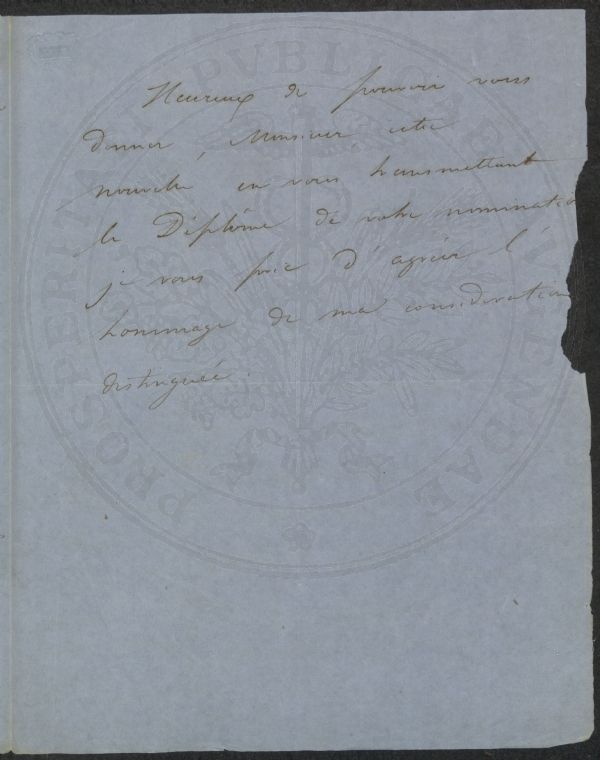 Heureux de pouvoir vous
donner, Monsieur, cette
nouvelle en vous transmettant
le Diplôme de votre nominatio
je vous prie d'agréer l'
hommage de ma consideration
distinguée.
PROSPERITATI PUBLICAE AUGENDAE